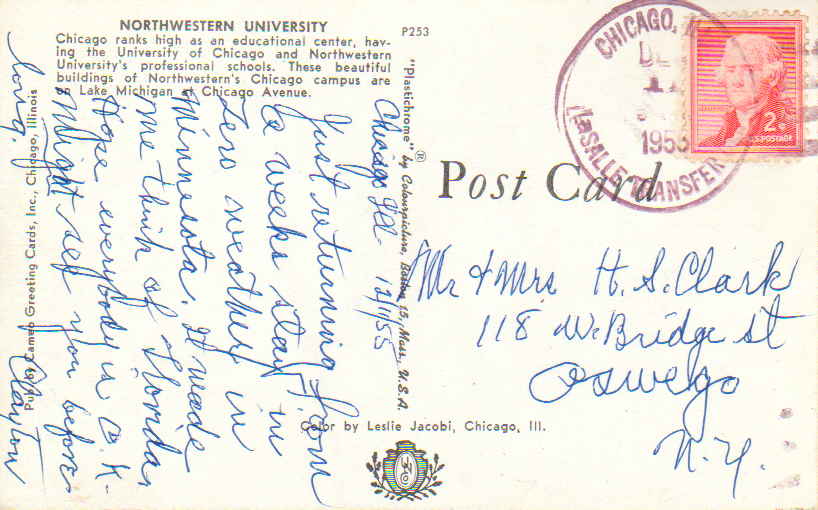 NORTHWESTERN UNIVERSITY
Chicago ranks high as an educational center, hav-
ing the University of Chicago and Northwestern
University's professional schools. These beautiful
buildings of Northwestern's Chicago campus are
on Lake Michigan at Chicago Avenue.
P253
CHICAGO,
11
1955
LASALLE TRANSFER
2¢
POSTAGE
Post Card
"Plastichrome" ® by Colourpicture, Boston 15, Mass., U.S.A.
Pub. by Cameo Greeting Cards, Inc., Chicago, Illinois
Chicago Ill- 12/11/55
Just returning from
2 weeks stay in
Zero weather in
Minnesota. It made
me think of Florida
Hope everybody is O.K-
Might see you before
long.
Clayton
Mr & Mrs H. S. Clark
118 W. Bridge St
Oswego
N.Y.
Color by Leslie Jacobi, Chicago, Ill.